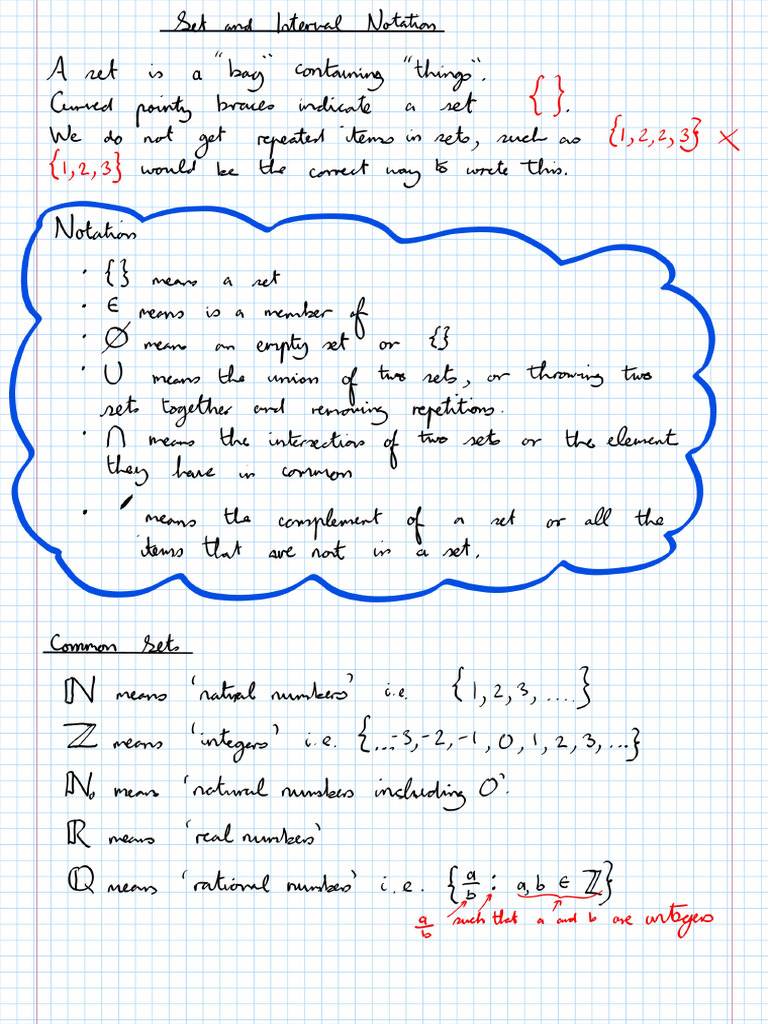 Set and Interval Notation
A set is a "bag" containing "things".
Curved pointy braces indicate a set { }.
We do not get repeated items in sets, such as {1,2,2,3} ×
{1,2,3} would be the correct way to wrote this.
Notation
• {} means a set
• ∈ means is a member of
• ∅ means an empty set or {}
• ∪ means the union of two sets, or throwing two
sets together and removing repetitions.
• ∩ means the intersection of two sets or the element
they have in common
• ′ means the complement of a set or all the
items that are not in a set.
Common Sets
ℕ means 'natural numbers' i.e. {1,2,3,....}
ℤ means 'integers' i.e. {...-3,-2,-1,0,1,2,3,...}
ℕ₀ means 'natural numbers including 0'.
ℝ means 'real numbers'
ℚ means 'rational numbers' i.e. {a/b : a,b ∈ ℤ}
a/b such that a and b are integers